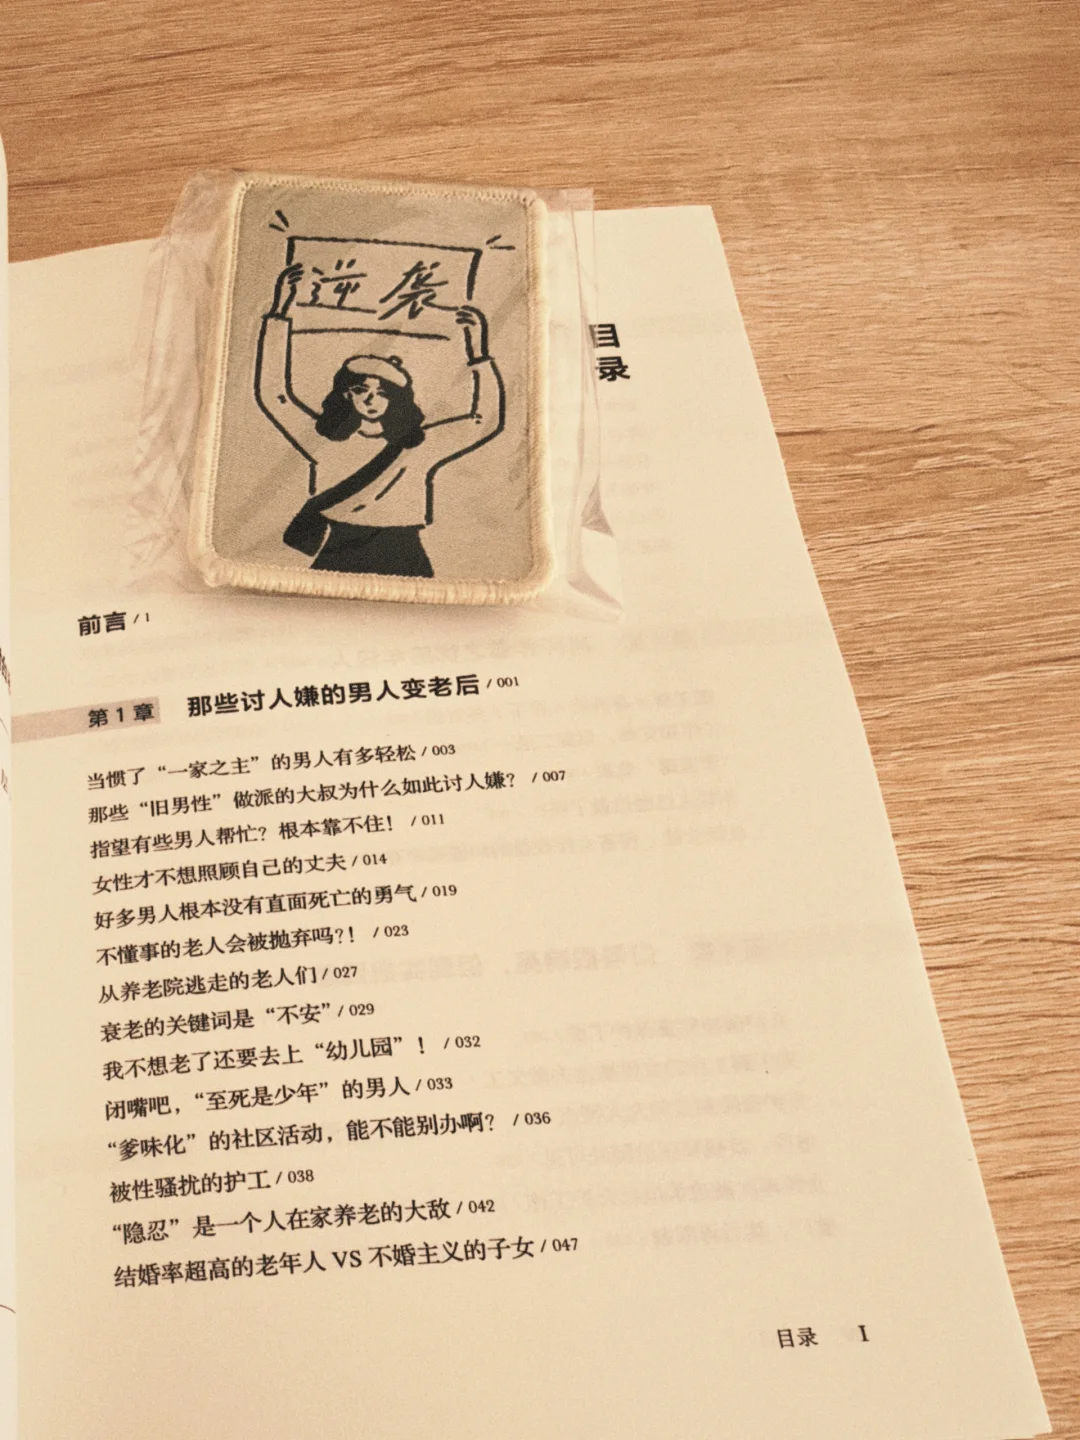 逆袭
目录
前言 / 1
第1章 那些讨人嫌的男人变老后 / 001
当惯了“一家之主”的男人有多轻松 / 003
那些“旧男性”做派的大叔为什么如此讨人嫌？ / 007
指望有些男人帮忙？根本靠不住！ / 011
女性才不想照顾自己的丈夫 / 014
好多男人根本没有直面死亡的勇气 / 019
不懂事的老人会被抛弃吗？！ / 023
从养老院逃走的老人们 / 027
衰老的关键词是“不安” / 029
我不想老了还要去上“幼儿园”！ / 032
闭嘴吧，“至死是少年”的男人 / 033
“爹味化”的社区活动，能不能别办啊？ / 036
被性骚扰的护工 / 038
“隐忍”是一个人在家养老的大敌 / 042
结婚率超高的老年人 VS 不婚主义的子女 / 047
目录 I